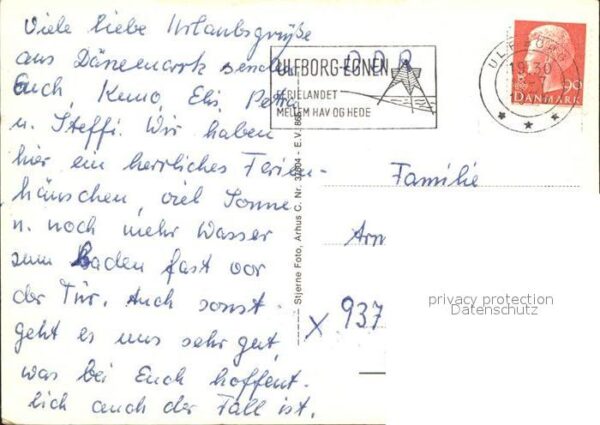 Viele liebe Urlaubsgrüße
aus Dänemark senden
Euch, Kuno, Elis, Petra
u. Steffi. Wir haben
hier ein herrliches Ferien-
häuschen, viel Sonne
u. noch mehr Wasser
zum Baden fast vor
der Tür. Auch sonst
geht es uns sehr gut,
was bei Euch hoffent-
lich auch der Fall ist.
ULFBORG-EGNEN
FERIELANDET
MELLEM HAV OG HEDE
ULFBORG
19.30
90
DANMARK
Stjerne Foto, Århus C. Nr. 32804 - E.V. 866
Familie
Arn
x 937
privacy protection
Datenschutz